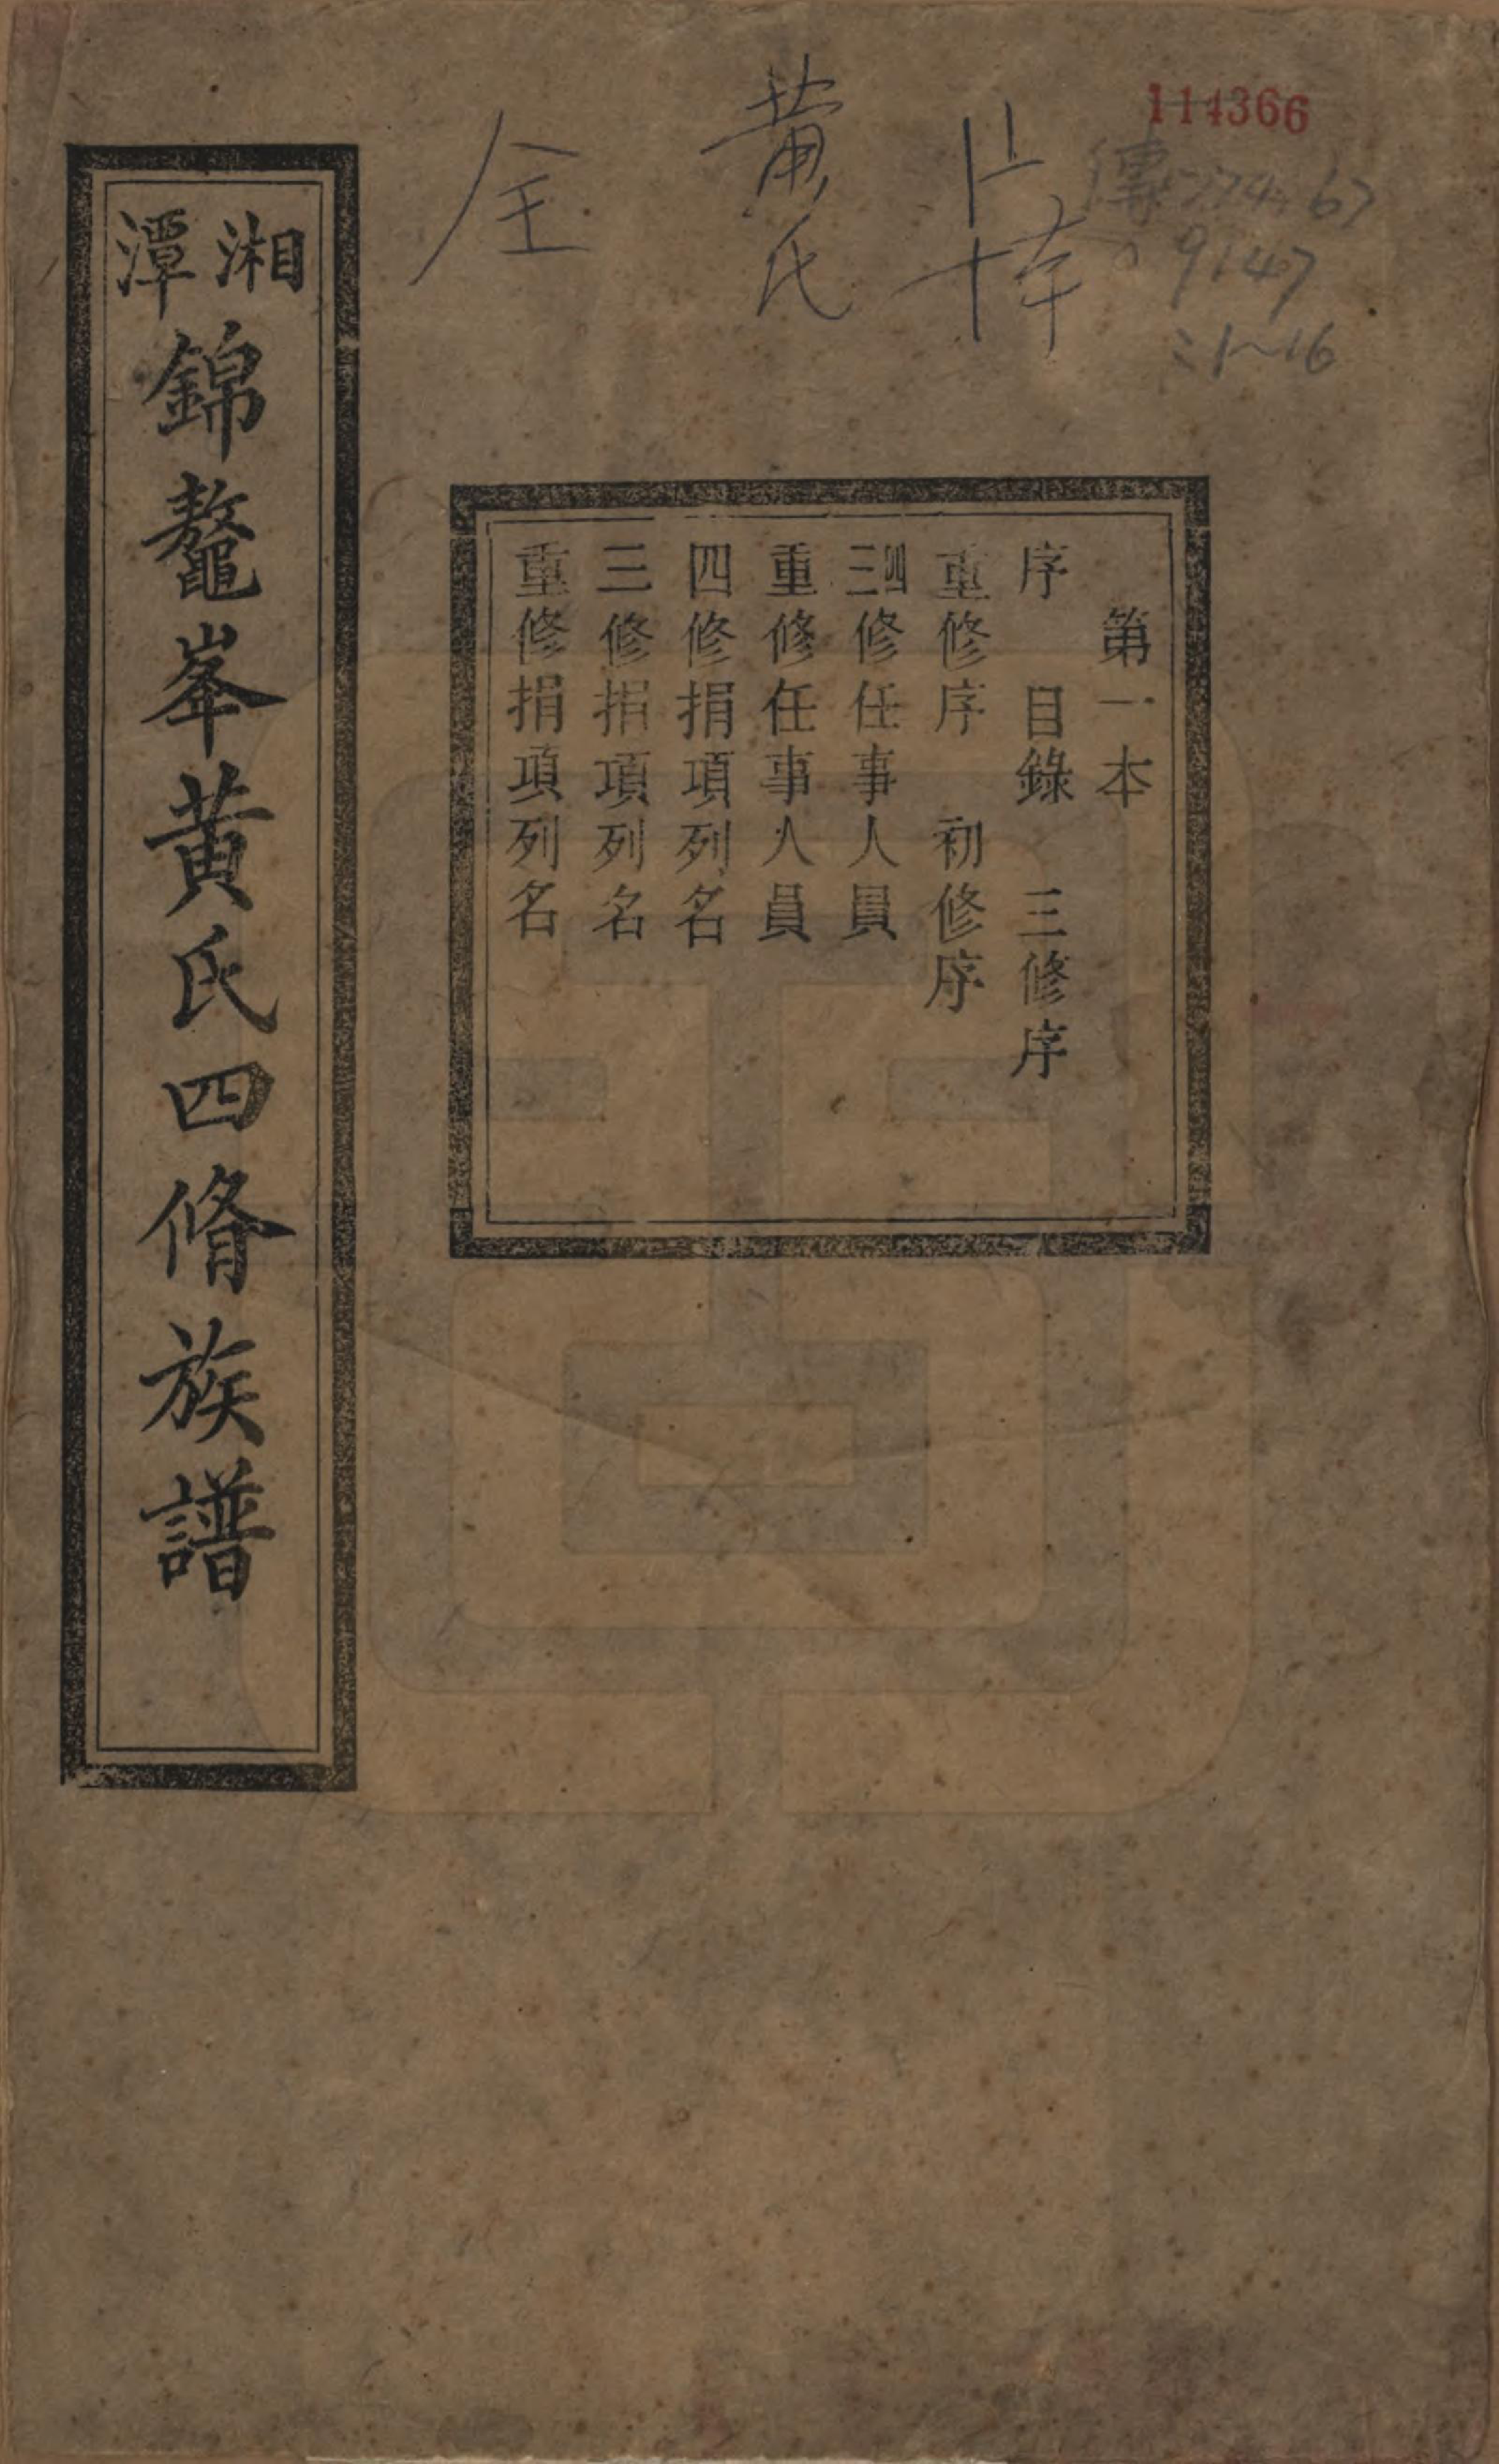 114366
傳774.67
9147
:1~16
黄氏
全
第一本
序　目錄　三修序
重修序　初修序
三四修任事人員
重修任事人員
四修捐項列名
三修捐項列名
重修捐項列名
湘潭錦鼇峯黄氏四脩族譜